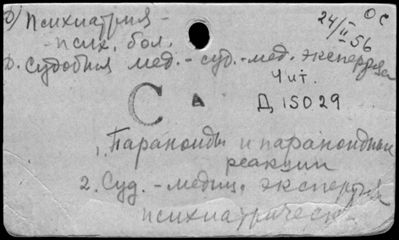 Психиатрия -
- псих. бол.
ОС
24/I
II 56
Судебная мед. - суд. - мед. экспертиза
Чит.
С А
Д 15029
1. Параноиды и параноидные
реакции
2. Суд. - медиц. экспертиза
психиатрическ.